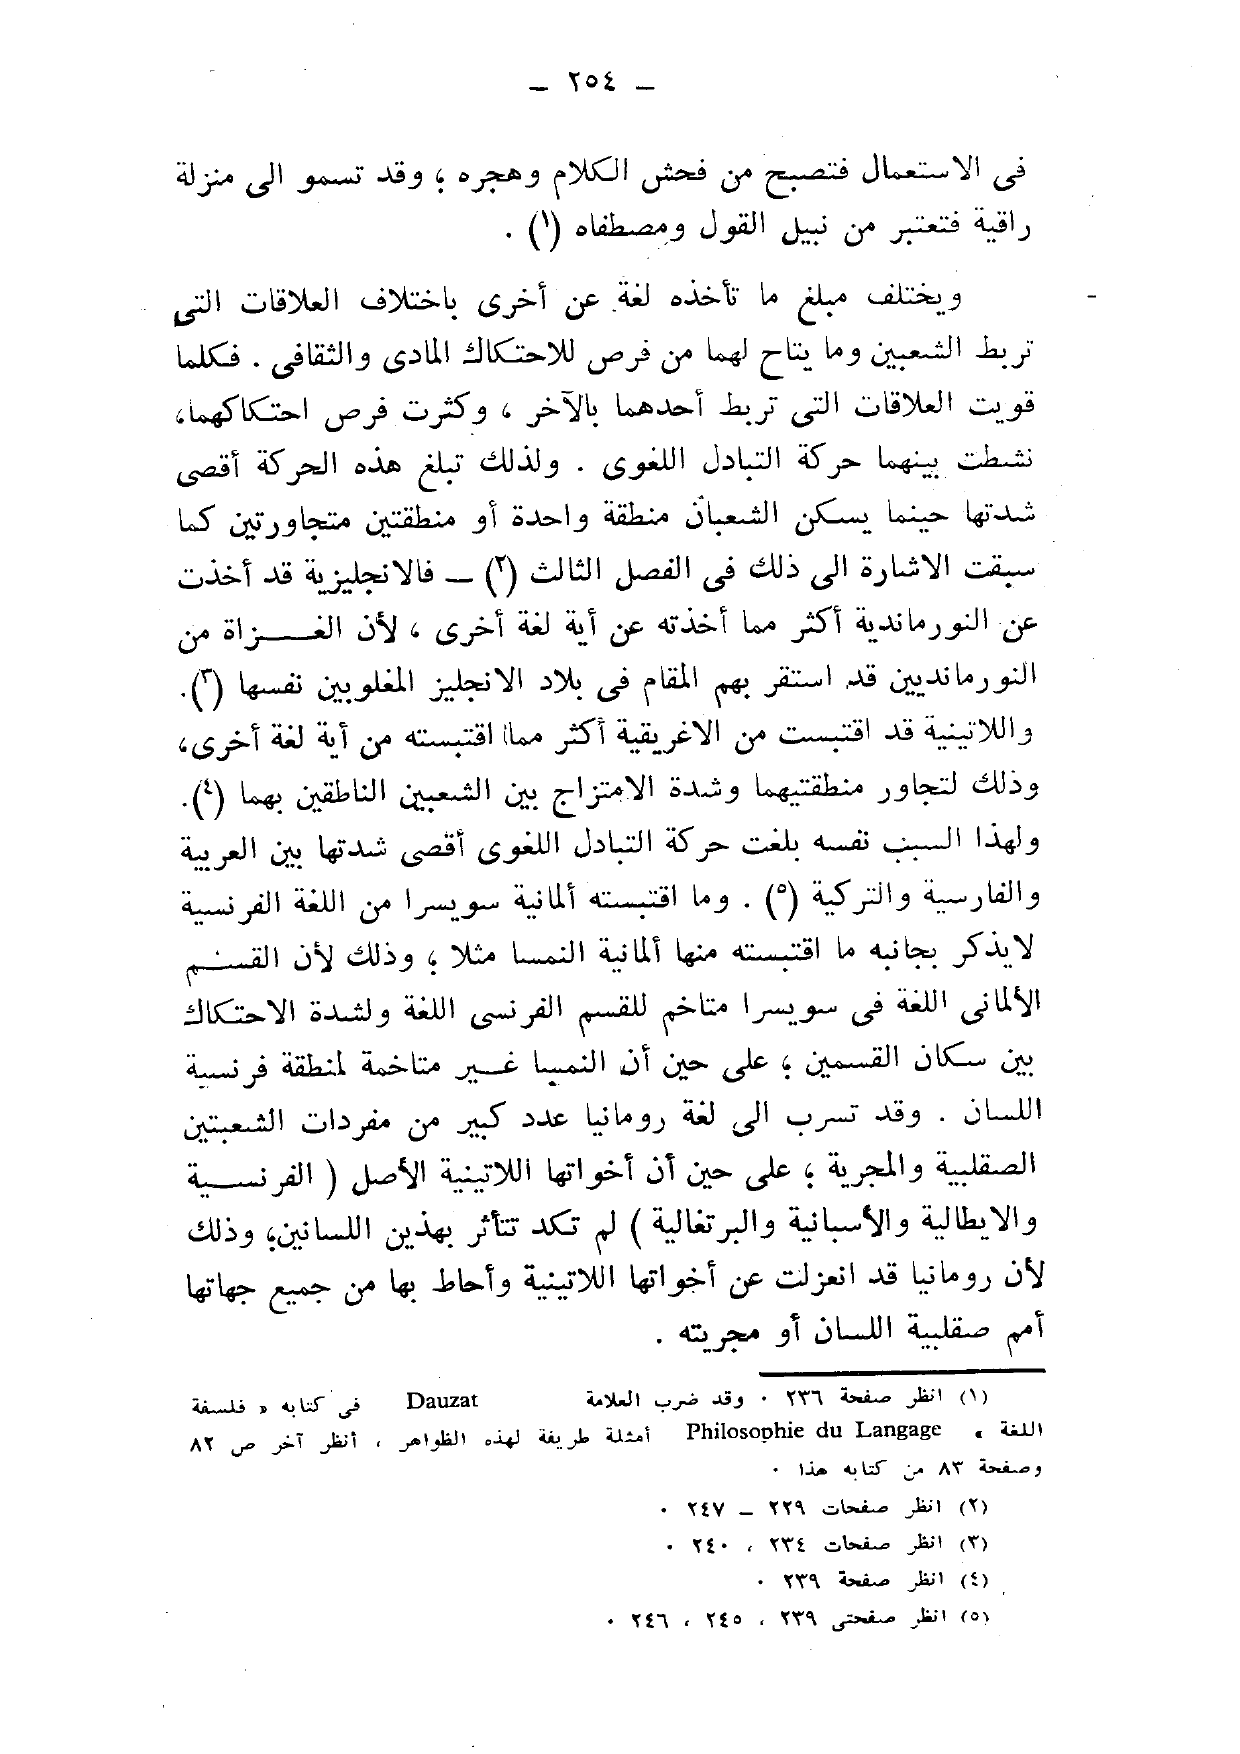 — ٢٥٤ —
فى الاستعمال فتصبح من فحش الكلام وهجره ؛ وقد تسمو الى منزلة
راقية فتعتبر من نبيل القول ومصطفاه (١) .
ويختلف مبلغ ما تأخذه لغة عن أخرى باختلاف العلاقات التى
تربط الشعبين وما يتاح لهما من فرص للاحتكاك المادى والثقافى . فكلما
قويت العلاقات التى تربط أحدهما بالآخر ، وكثرت فرص احتكاكهما،
نشطت بينهما حركة التبادل اللغوى . ولذلك تبلغ هذه الحركة أقصى
شدتها حينما يسكن الشعبان منطقة واحدة أو منطقتين متجاورتين كما
سبقت الاشارة الى ذلك فى الفصل الثالث (٢) — فالانجليزية قد أخذت
عن النورماندية أكثر مما أخذته عن أية لغة أخرى ، لأن الغـــزاة من
النورمانديين قد استقر بهم المقام فى بلاد الانجليز المغلوبين نفسها (٣).
واللاتينية قد اقتبست من الاغريقية أكثر مما اقتبسته من أية لغة أخرى،
وذلك لتجاور منطقتيهما وشدة الامتزاج بين الشعبين الناطقين بهما (٤).
ولهذا السبب نفسه بلغت حركة التبادل اللغوى أقصى شدتها بين العربية
والفارسية والتركية (٥) . وما اقتبسته ألمانية سويسرا من اللغة الفرنسية
لايذكر بجانبه ما اقتبسته منها ألمانية النمسا مثلا ؛ وذلك لأن القسم
الألمانى اللغة فى سويسرا متاخم للقسم الفرنسى اللغة ولشدة الاحتكاك
بين سكان القسمين ؛ على حين أن النمسا غير متاخمة لمنطقة فرنسية
اللسان . وقد تسرب الى لغة رومانيا عدد كبير من مفردات الشعبتين
الصقلبية والمجرية ؛ على حين أن أخواتها اللاتينية الأصل ( الفرنســية
والايطالية والأسبانية والبرتغالية ) لم تكد تتأثر بهذين اللسانين؛ وذلك
لأن رومانيا قد انعزلت عن أخواتها اللاتينية وأحاط بها من جميع جهاتها
أمم صقلبية اللسان أو مجريته .
(١) انظر صفحة ٢٣٦ . وقد ضرب العلامة Dauzat فى كتابه « فلسفة
اللغة » Philosophie du Langage أمثلة طريفة لهذه الظواهر ، أنظر آخر ص ٨٢
وصفحة ٨٣ من كتابه هذا .
(٢) انظر صفحات ٢٢٩ — ٢٤٧ .
(٣) انظر صفحات ٢٣٤ ، ٢٤٠ .
(٤) انظر صفحة ٢٣٩ .
(٥) انظر صفحتى ٢٣٩ ، ٢٤٥ ، ٢٤٦ .